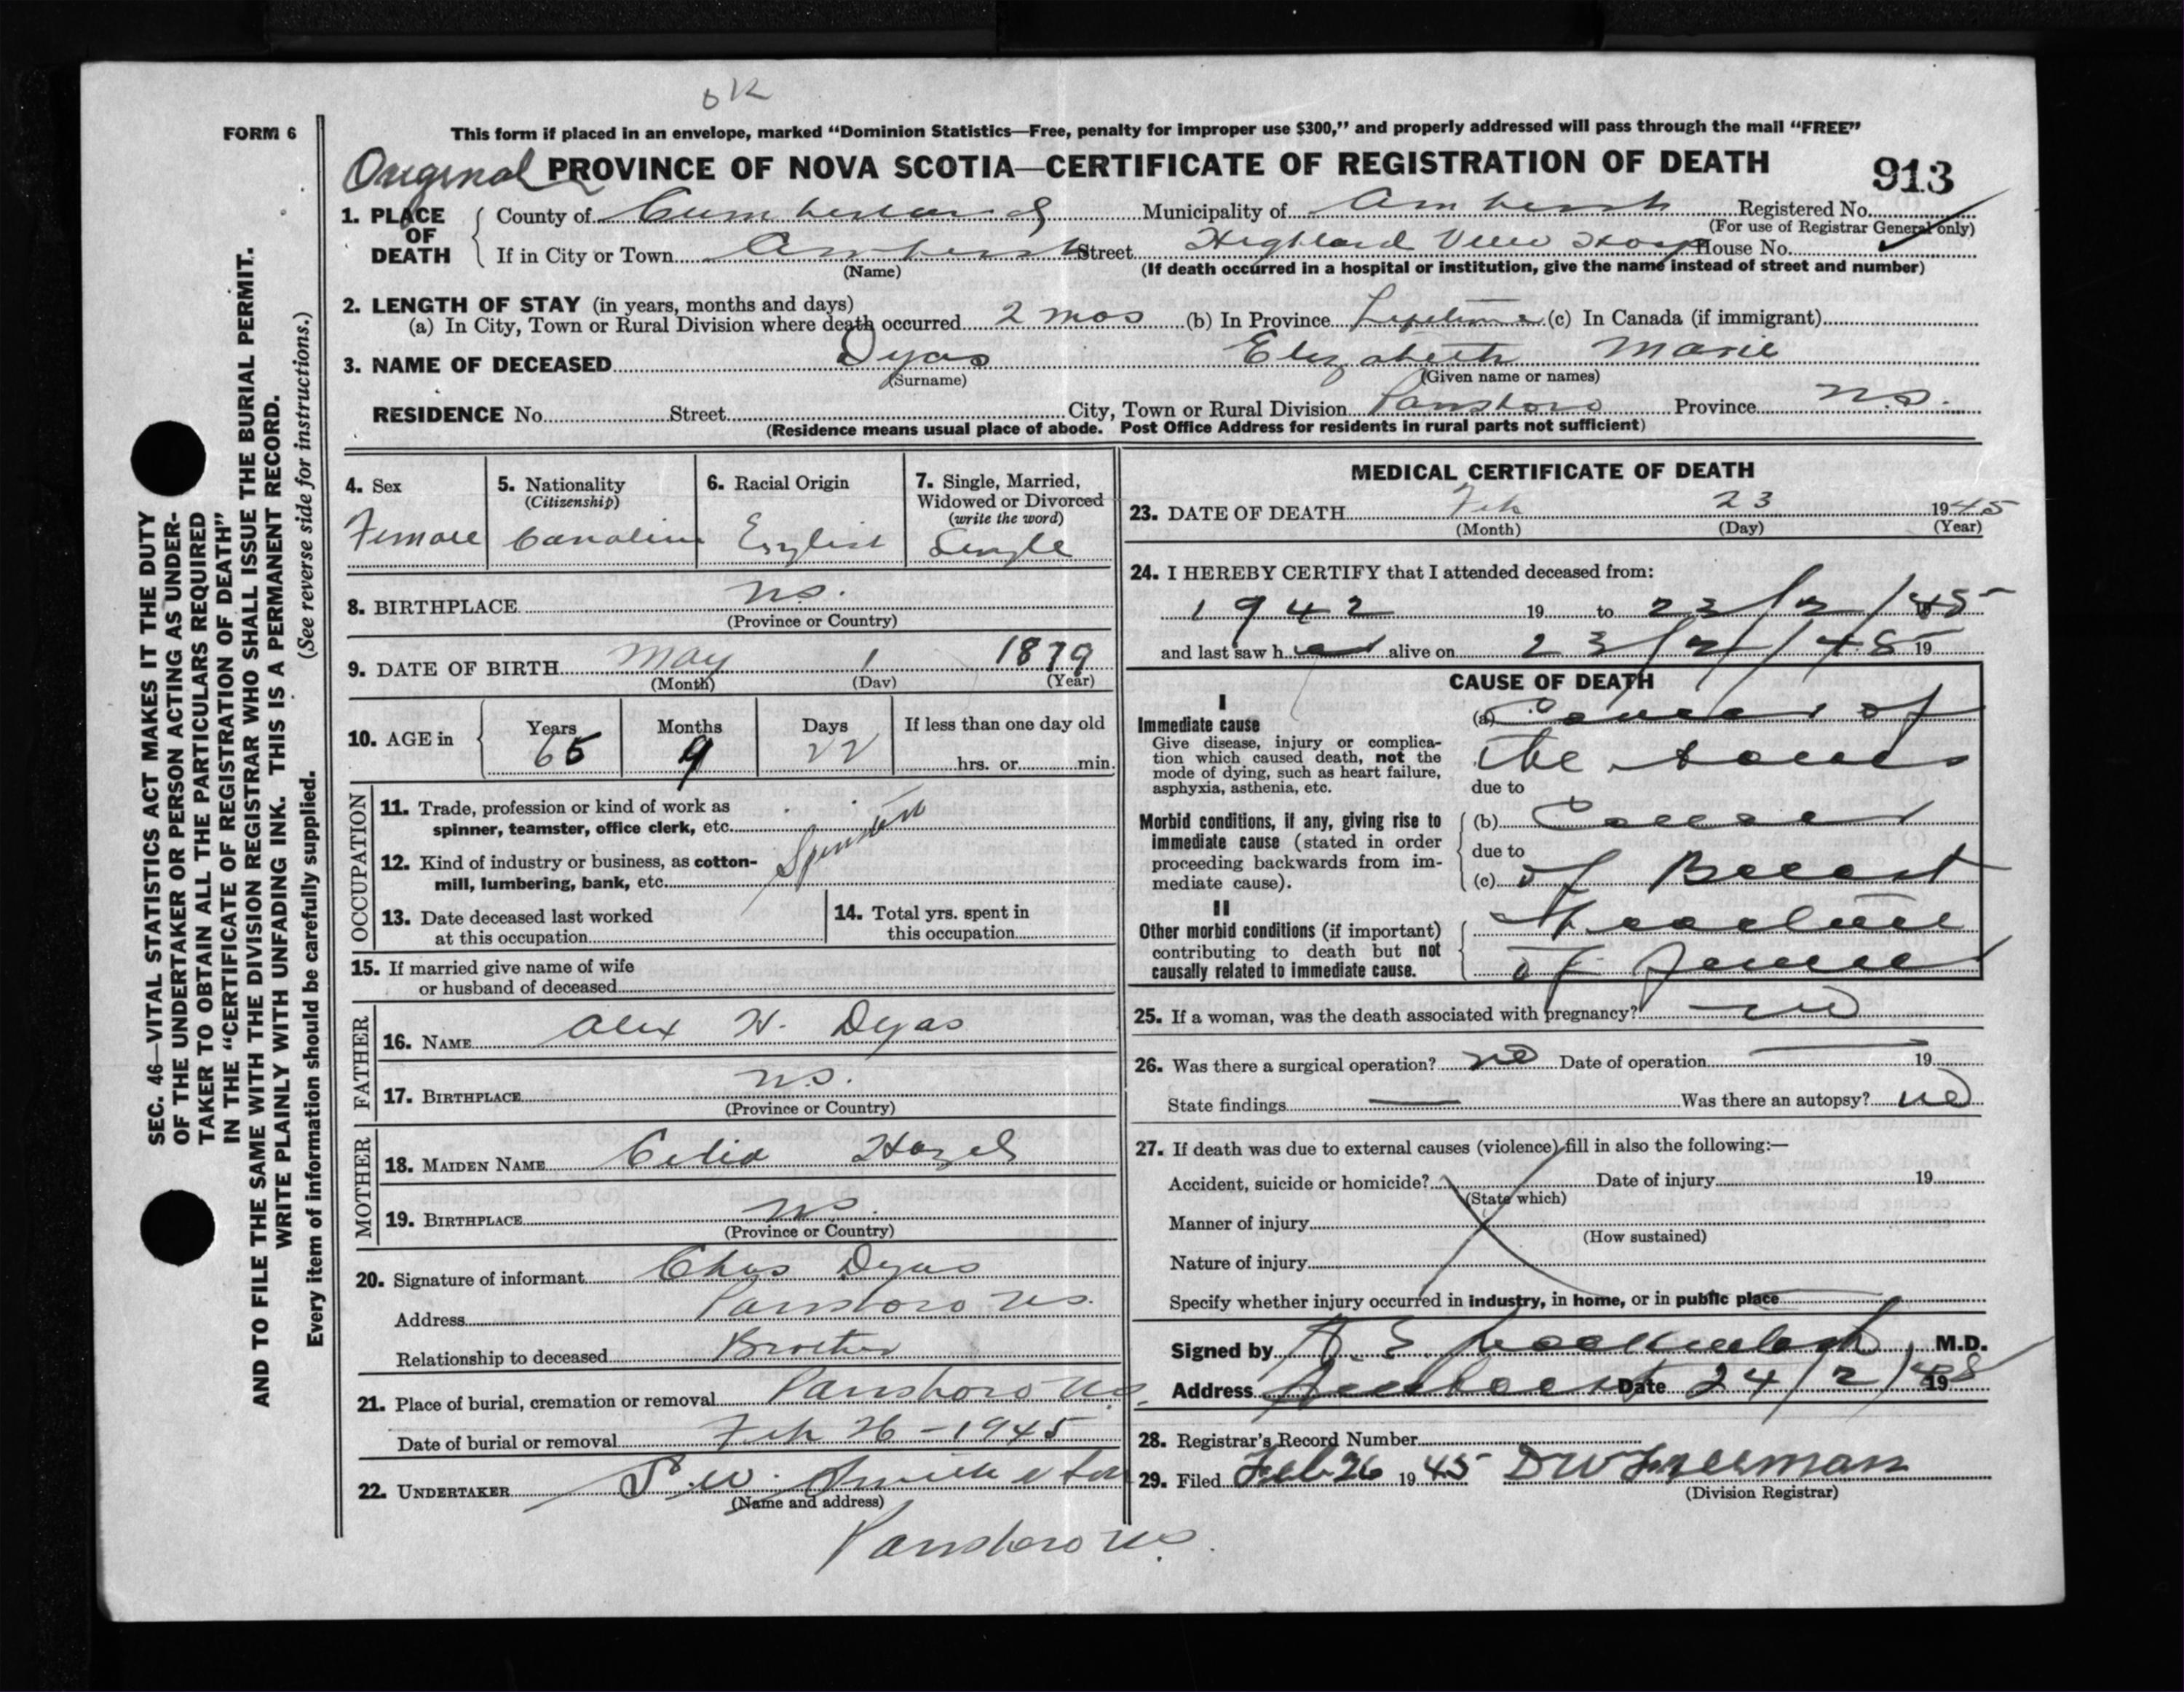 OK
FORM 6
This form if placed in an envelope, marked “Dominion Statistics—Free, penalty for improper use $300,” and properly addressed will pass through the mail “FREE”
Original PROVINCE OF NOVA SCOTIA—CERTIFICATE OF REGISTRATION OF DEATH 913
1. PLACE OF DEATH County of Cumberland Municipality of Amherst Registered No.
(For use of Registrar General only)
If in City or Town Amherst Street Highland View Hosp House No.
(Name) (If death occurred in a hospital or institution, give the name instead of street and number)
2. LENGTH OF STAY (in years, months and days)
(a) In City, Town or Rural Division where death occurred 2 mos (b) In Province Lifetime (c) In Canada (if immigrant)
3. NAME OF DECEASED Dyas Elizabeth Marie
(Surname) (Given name or names)
RESIDENCE No. Street City, Town or Rural Division Parrsboro Province N.S.
(Residence means usual place of abode. Post Office Address for residents in rural parts not sufficient)
4. Sex
Female
5. Nationality
(Citizenship)
Canadian
6. Racial Origin
English
7. Single, Married,
Widowed or Divorced
(write the word)
Single
8. BIRTHPLACE N.S.
(Province or Country)
9. DATE OF BIRTH May 1 1879
(Month) (Day) (Year)
10. AGE in Years Months Days If less than one day old
65 9 22 hrs. or min.
OCCUPATION
11. Trade, profession or kind of work as
spinner, teamster, office clerk, etc.
Spinster
12. Kind of industry or business, as cotton-
mill, lumbering, bank, etc.
13. Date deceased last worked
at this occupation
14. Total yrs. spent in
this occupation
15. If married give name of wife
or husband of deceased
FATHER
16. NAME Alex W. Dyas
17. BIRTHPLACE N.S.
(Province or Country)
MOTHER
18. MAIDEN NAME Celia Hazel
19. BIRTHPLACE N.S.
(Province or Country)
20. Signature of informant Chas Dyas
Address Parrsboro N.S.
Relationship to deceased Brother
21. Place of burial, cremation or removal Parrsboro N.S.
Date of burial or removal Feb 26 - 1945
22. UNDERTAKER Smith & Son
(Name and address)
Parrsboro N.S.
MEDICAL CERTIFICATE OF DEATH
23. DATE OF DEATH Feb 23 1945
(Month) (Day) (Year)
24. I HEREBY CERTIFY that I attended deceased from:
1942 19 to 23/2/45
and last saw her alive on 23/2/45 19
CAUSE OF DEATH
I
Immediate cause
Give disease, injury or complica-
tion which caused death, not the
mode of dying, such as heart failure,
asphyxia, asthenia, etc.
(a) Cancer of
the bones
due to
Morbid conditions, if any, giving rise to
immediate cause (stated in order
proceeding backwards from im-
mediate cause).
(b) Cancer
due to
(c) of Breast
II
Other morbid conditions (if important)
contributing to death but not
causally related to immediate cause.
Fracture
of Femur
25. If a woman, was the death associated with pregnancy? no
26. Was there a surgical operation? no Date of operation 19
State findings — Was there an autopsy? no
27. If death was due to external causes (violence) fill in also the following:—
Accident, suicide or homicide? Date of injury 19
(State which)
Manner of injury
(How sustained)
Nature of injury
Specify whether injury occurred in industry, in home, or in public place
Signed by M.D.
Address Amherst Date 24/2/45 19
28. Registrar's Record Number
29. Filed Feb 26 1945 D W Freeman
(Division Registrar)
SEC. 46—VITAL STATISTICS ACT MAKES IT THE DUTY
OF THE UNDERTAKER OR PERSON ACTING AS UNDER-
TAKER TO OBTAIN ALL THE PARTICULARS REQUIRED
IN THE “CERTIFICATE OF REGISTRATION OF DEATH”
AND TO FILE THE SAME WITH THE DIVISION REGISTRAR WHO SHALL ISSUE THE BURIAL PERMIT.
WRITE PLAINLY WITH UNFADING INK. THIS IS A PERMANENT RECORD.
Every item of information should be carefully supplied. (See reverse side for instructions.)